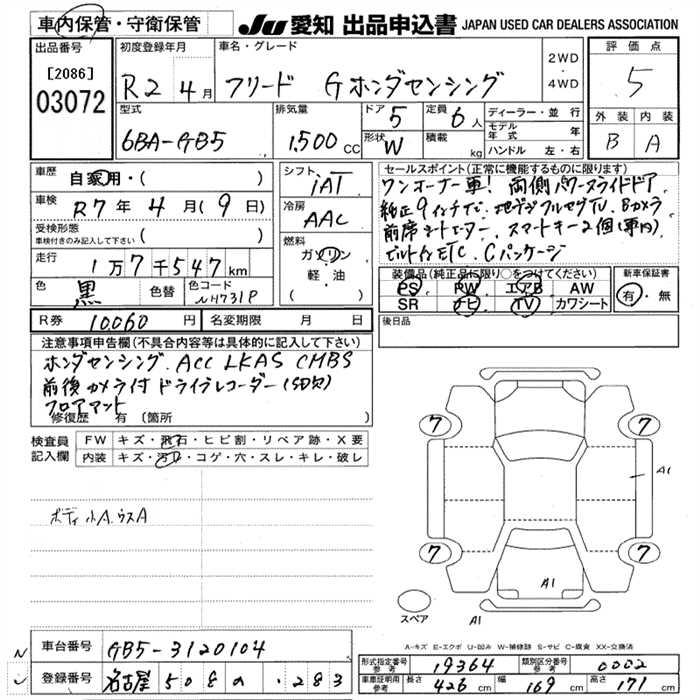 車内保管・守衛保管
JU 愛知 出品申込書 JAPAN USED CAR DEALERS ASSOCIATION
出品番号
[2086]
03072
初度登録年月
R2 4月
車名・グレード
フリード Gホンダセンシング
2WD
・
4WD
評価点
5
外装 内装
B A
型式
6BA-GB5
排気量
1,500 CC
ドア 5
定員 6人
形状 W
積載 kg
ディーラー・並行
モデル年式 年
ハンドル 左・右
車歴
自家用・( )
車検
R7年 4月(9日)
受検形態
車検付きのみ記入して下さい ( )
走行
1万7千547km
色
黒
色替
色コード
NH731P
シフト
iAT
冷房
AAC
燃料
ガソリン
軽・油
( )
セールスポイント(正常に機能するものに限ります)
ワンオーナー車! 両側パワースライドドア
純正9インチナビ、地デジフルセグTV、Bカメラ
前席シートヒーター、スマートキー2個(車内)
ビルトインETC、Cパッケージ
装備品(純正品に限り○をつけてください)
PS PW エアB AW
SR ナビ TV カワシート
新車保証書
有・無
R券 10,060円
名変期限 月 日
後日品
注意事項申告欄(不具合内容等は具体的に記入して下さい)
ホンダセンシング、ACC LKAS CMBS
前後カメラ付ドライブレコーダー(SD欠)
フロアマット
修復歴 有 (箇所 )
検査員記入欄
FW キズ・飛石・ヒビ割・リペア跡・X要
内装 キズ・汚れ・コゲ・穴・スレ・キレ・破レ
ボディ小A、ウスA
7 7
A1
7 7
A1
スペア
A1
A-キズ E-エクボ U-凹み W-補修跡 S-サビ C-腐食 XX-交換済
車台番号 GB5-3120104
登録番号 名古屋 508 の ・283
型式指定番号参考 19364
類別区分番号参考 0002
車両証明用参考 長さ 426cm 幅 169cm 高さ 171cm